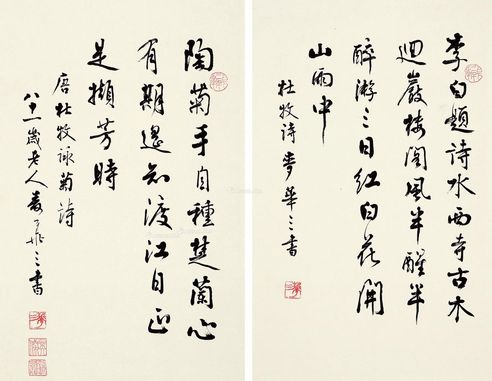 李白題詩水西寺古木
迴巖樓閣風半醒半
醉游三日紅白花開
山雨中
杜牧詩 麥華三書
陶菊手自種楚蘭心
有期遥知渡江日正
是擷芳時
唐杜牧詠菊詩
八十一歲老人麥華三書